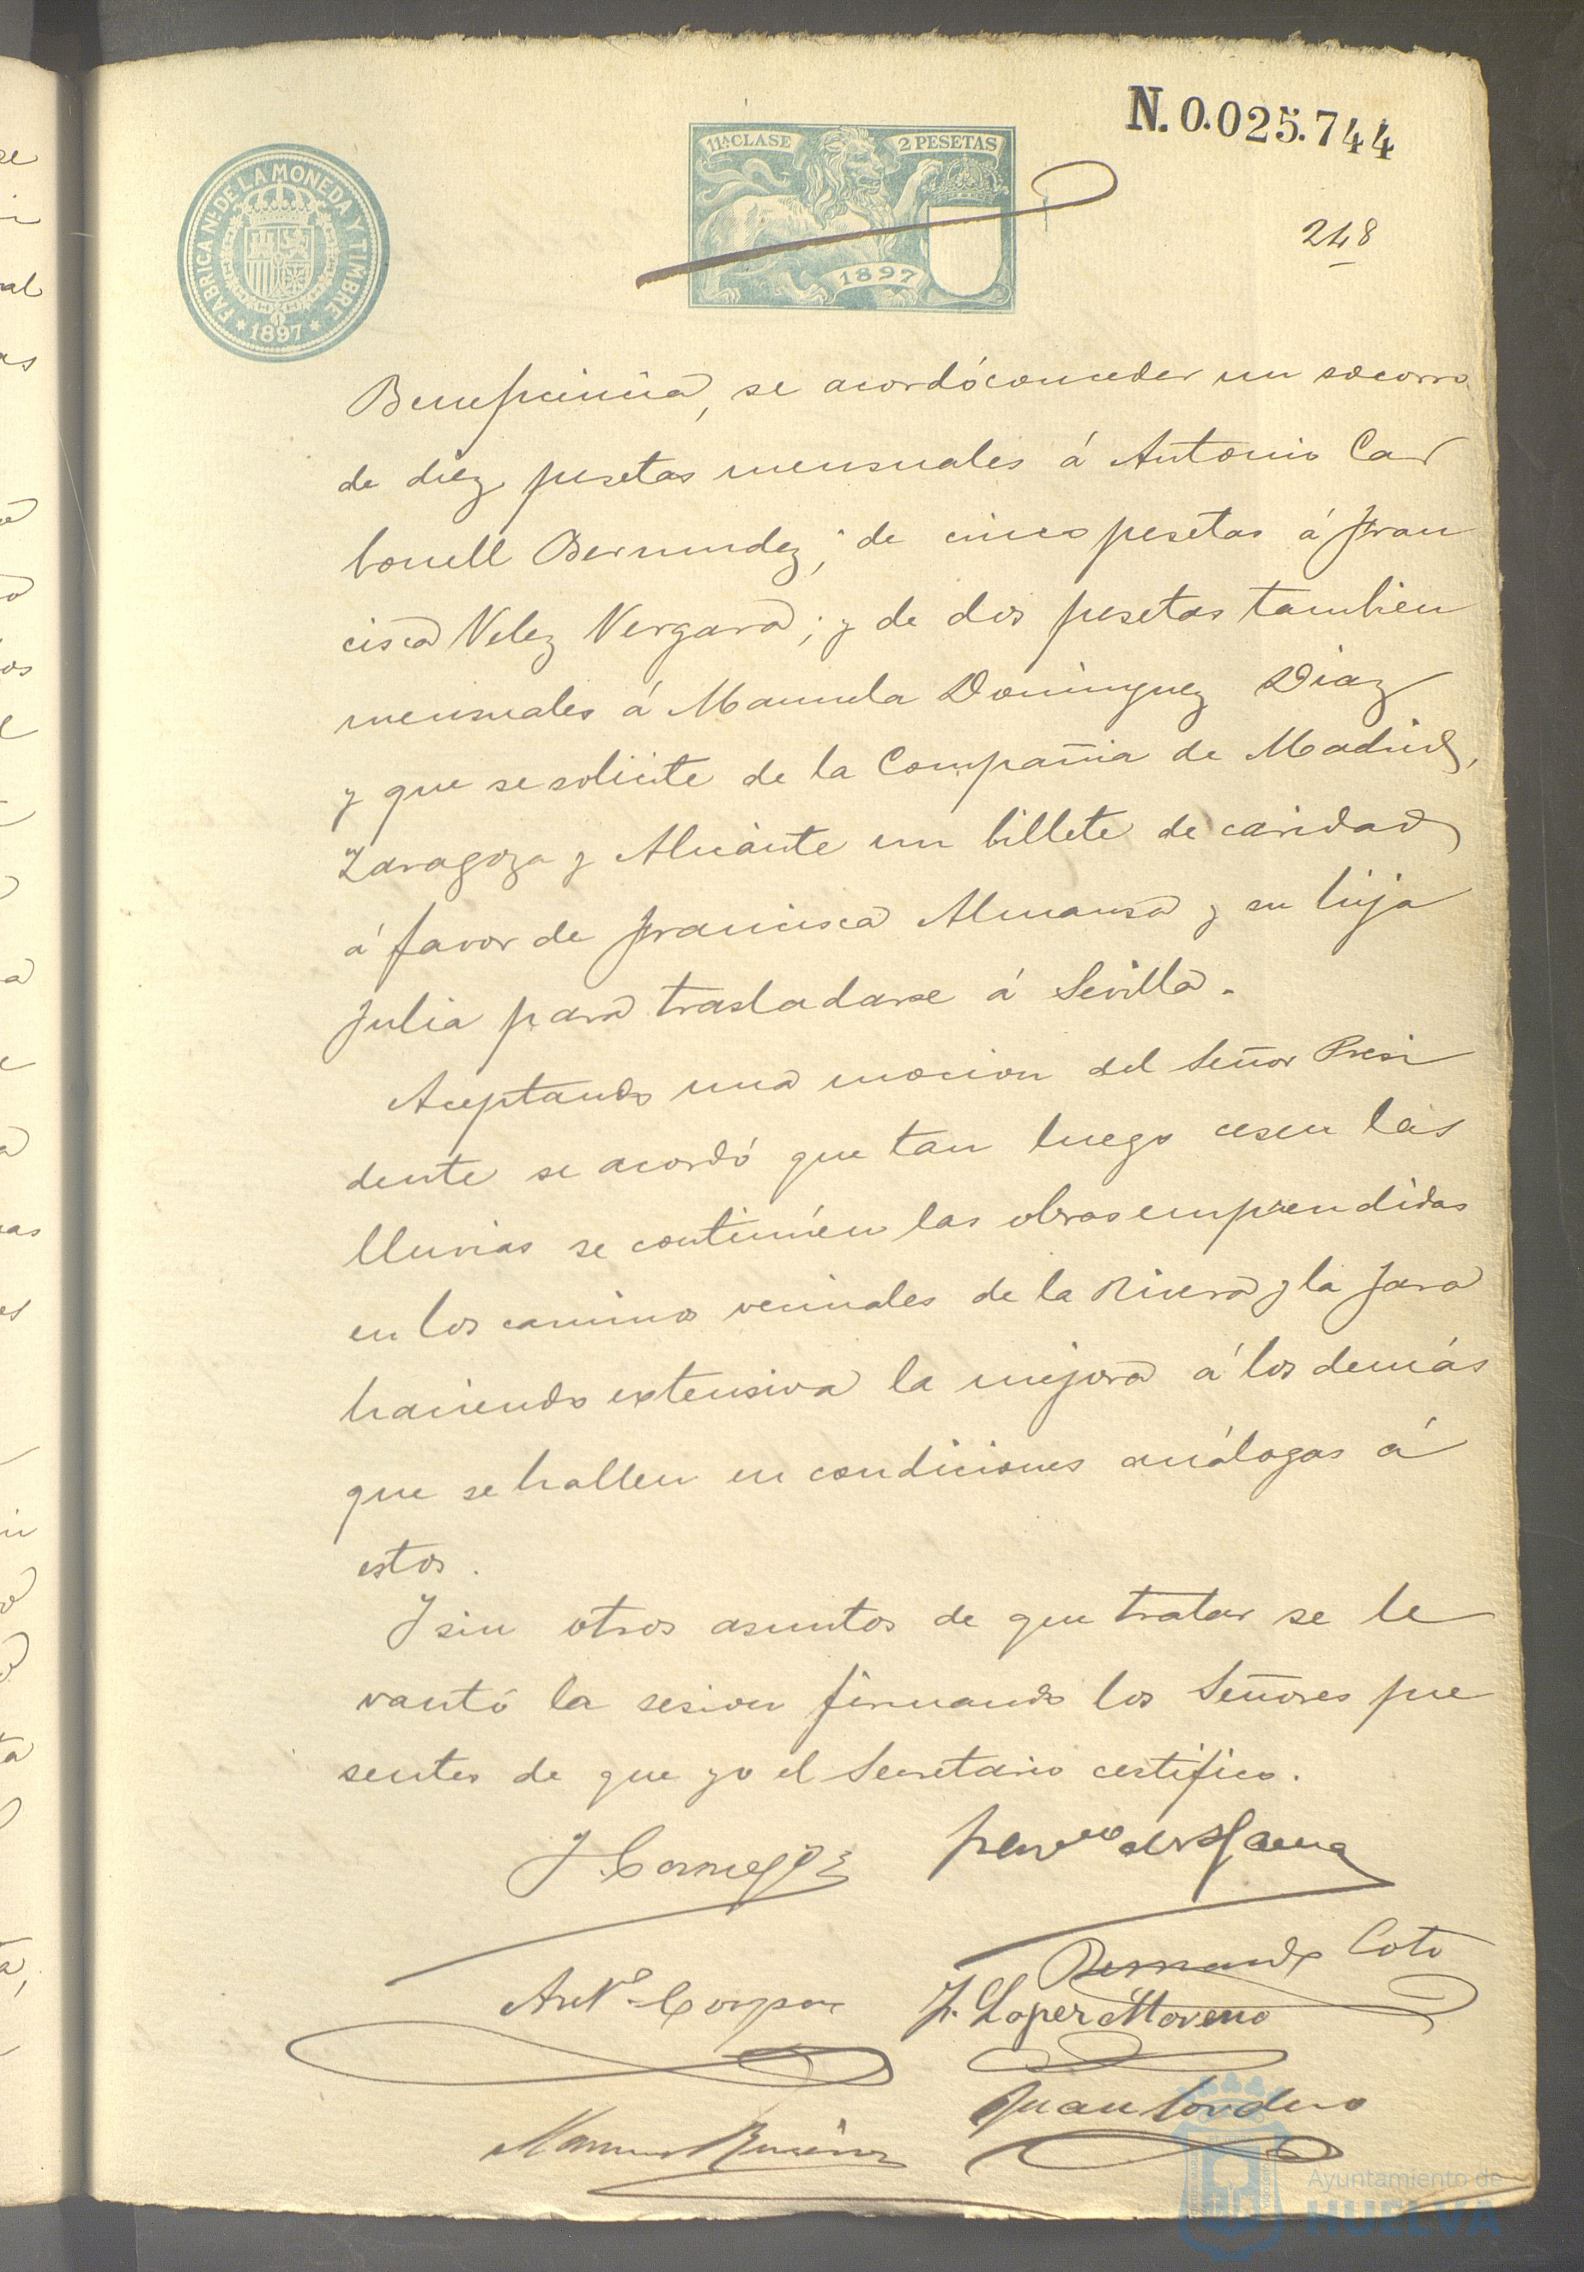 N. 0.025.744
FABRICA NL. DE LA MONEDA Y TIMBRE
* 1897 *
11ª CLASE
2 PESETAS
1897
248
Beneficiencia, se acordó conceder un socorro
de diez pesetas mensuales á Antonio Car
bonell Bermudez; de cinco pesetas á Fran
cisca Velez Vergara; y de dos pesetas tambien
mensuales á Manuela Dominguez Diaz
y que se solicite de la Compañia de Madrid,
Zaragoza y Alicante un billete de caridad
á favor de Francisca Almansa y su hija
Julia para trasladarse á Sevilla.
Aceptando una mocion del Señor Presi
dente se acordó que tan luego cesen las
lluvias se continúen las obras emprendidas
en los caminos vecinales de la Rivera y la Jara
haciendo extensiva la mejora á los demás
que se hallen en condiciones análogas á
estos.
Y sin otros asuntos de que tratar se le
vantó la sesion firmando los Señores pre
sentes de que yo el Secretario certifico.
Fernando Coto
Antº
J. Lopez Moreno
Juan Cordero
Ayuntamiento de
HUELVA